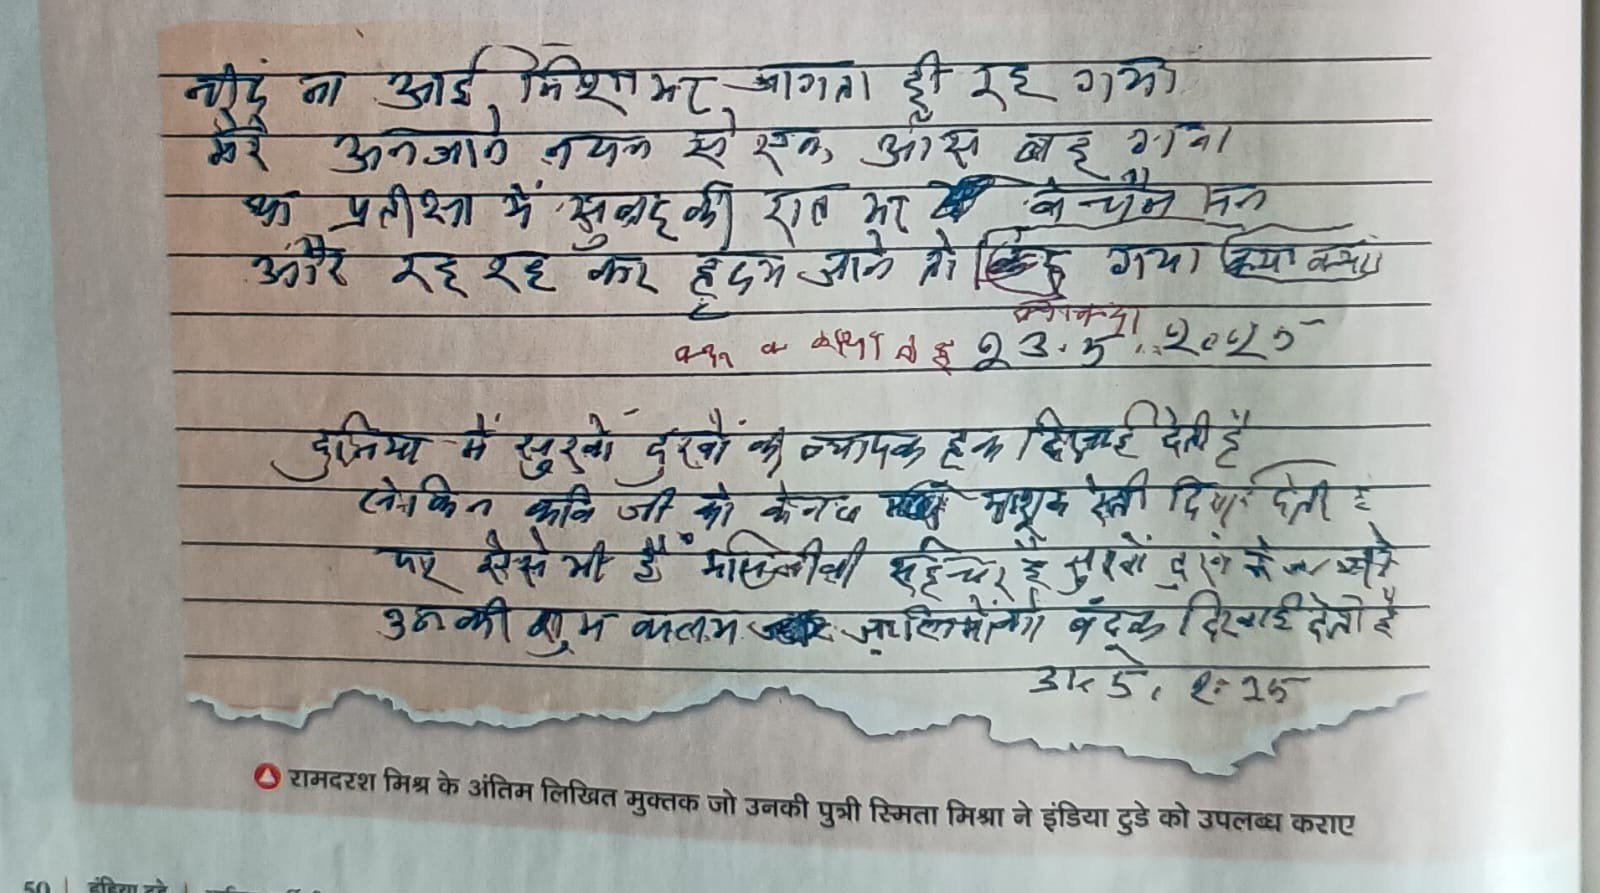 नींद ना आई निशा भर जागता ही रह गया
मेरे अनजाने नयन से एक आंसू बह गया
था प्रतीक्षा में सुबह की रात भर बेचैन मन
और रह रह कर हृदय जाने तो गया क्या क्या
23.5.2025
दुनिया में सुखों दुखों की व्यापक हूक दिखाई देती है
लेकिन कवि जी को केवल माशूक दिखाई देती है
पर ऐसे भी हैं मसिजीवी सहचर हैं सुखों दुखों के
उनकी शुभ कलम जालिमों को बंदूक दिखाई देती है
रामदरश मिश्र के अंतिम लिखित मुक्तक जो उनकी पुत्री स्मिता मिश्रा ने इंडिया टुडे को उपलब्ध कराए
50 | इंडिया टुडे |